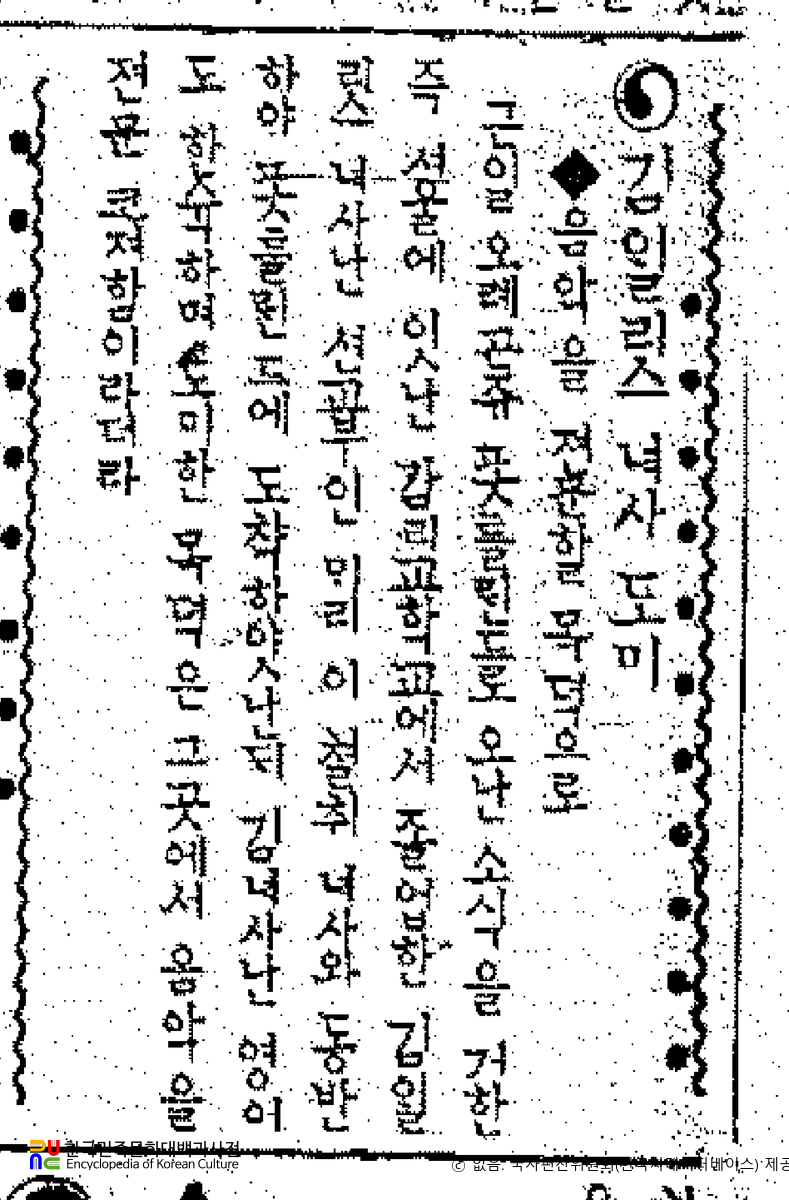 김일리스 녀자 도미
◆음악을 전문할 목뎍으로
근일 오레곤주 폿틀랜드로 오난 소식을 거한
즉 서울에 잇난 감리교학교에서 졸업한 김일
릿스 녀자난 션교부인 밀 이 녀사와 동반
하야 폿틀랜드에 도착하얏난데 김녀자난 영어
도 하며 도미한 목뎍은 그곳에서 음악을
전문 이라더라
한국민족문화대백과사전
Encyclopedia of Korean Culture
ⓒ 없음. 국사편찬위원회(한국사데이터베이스) 제공